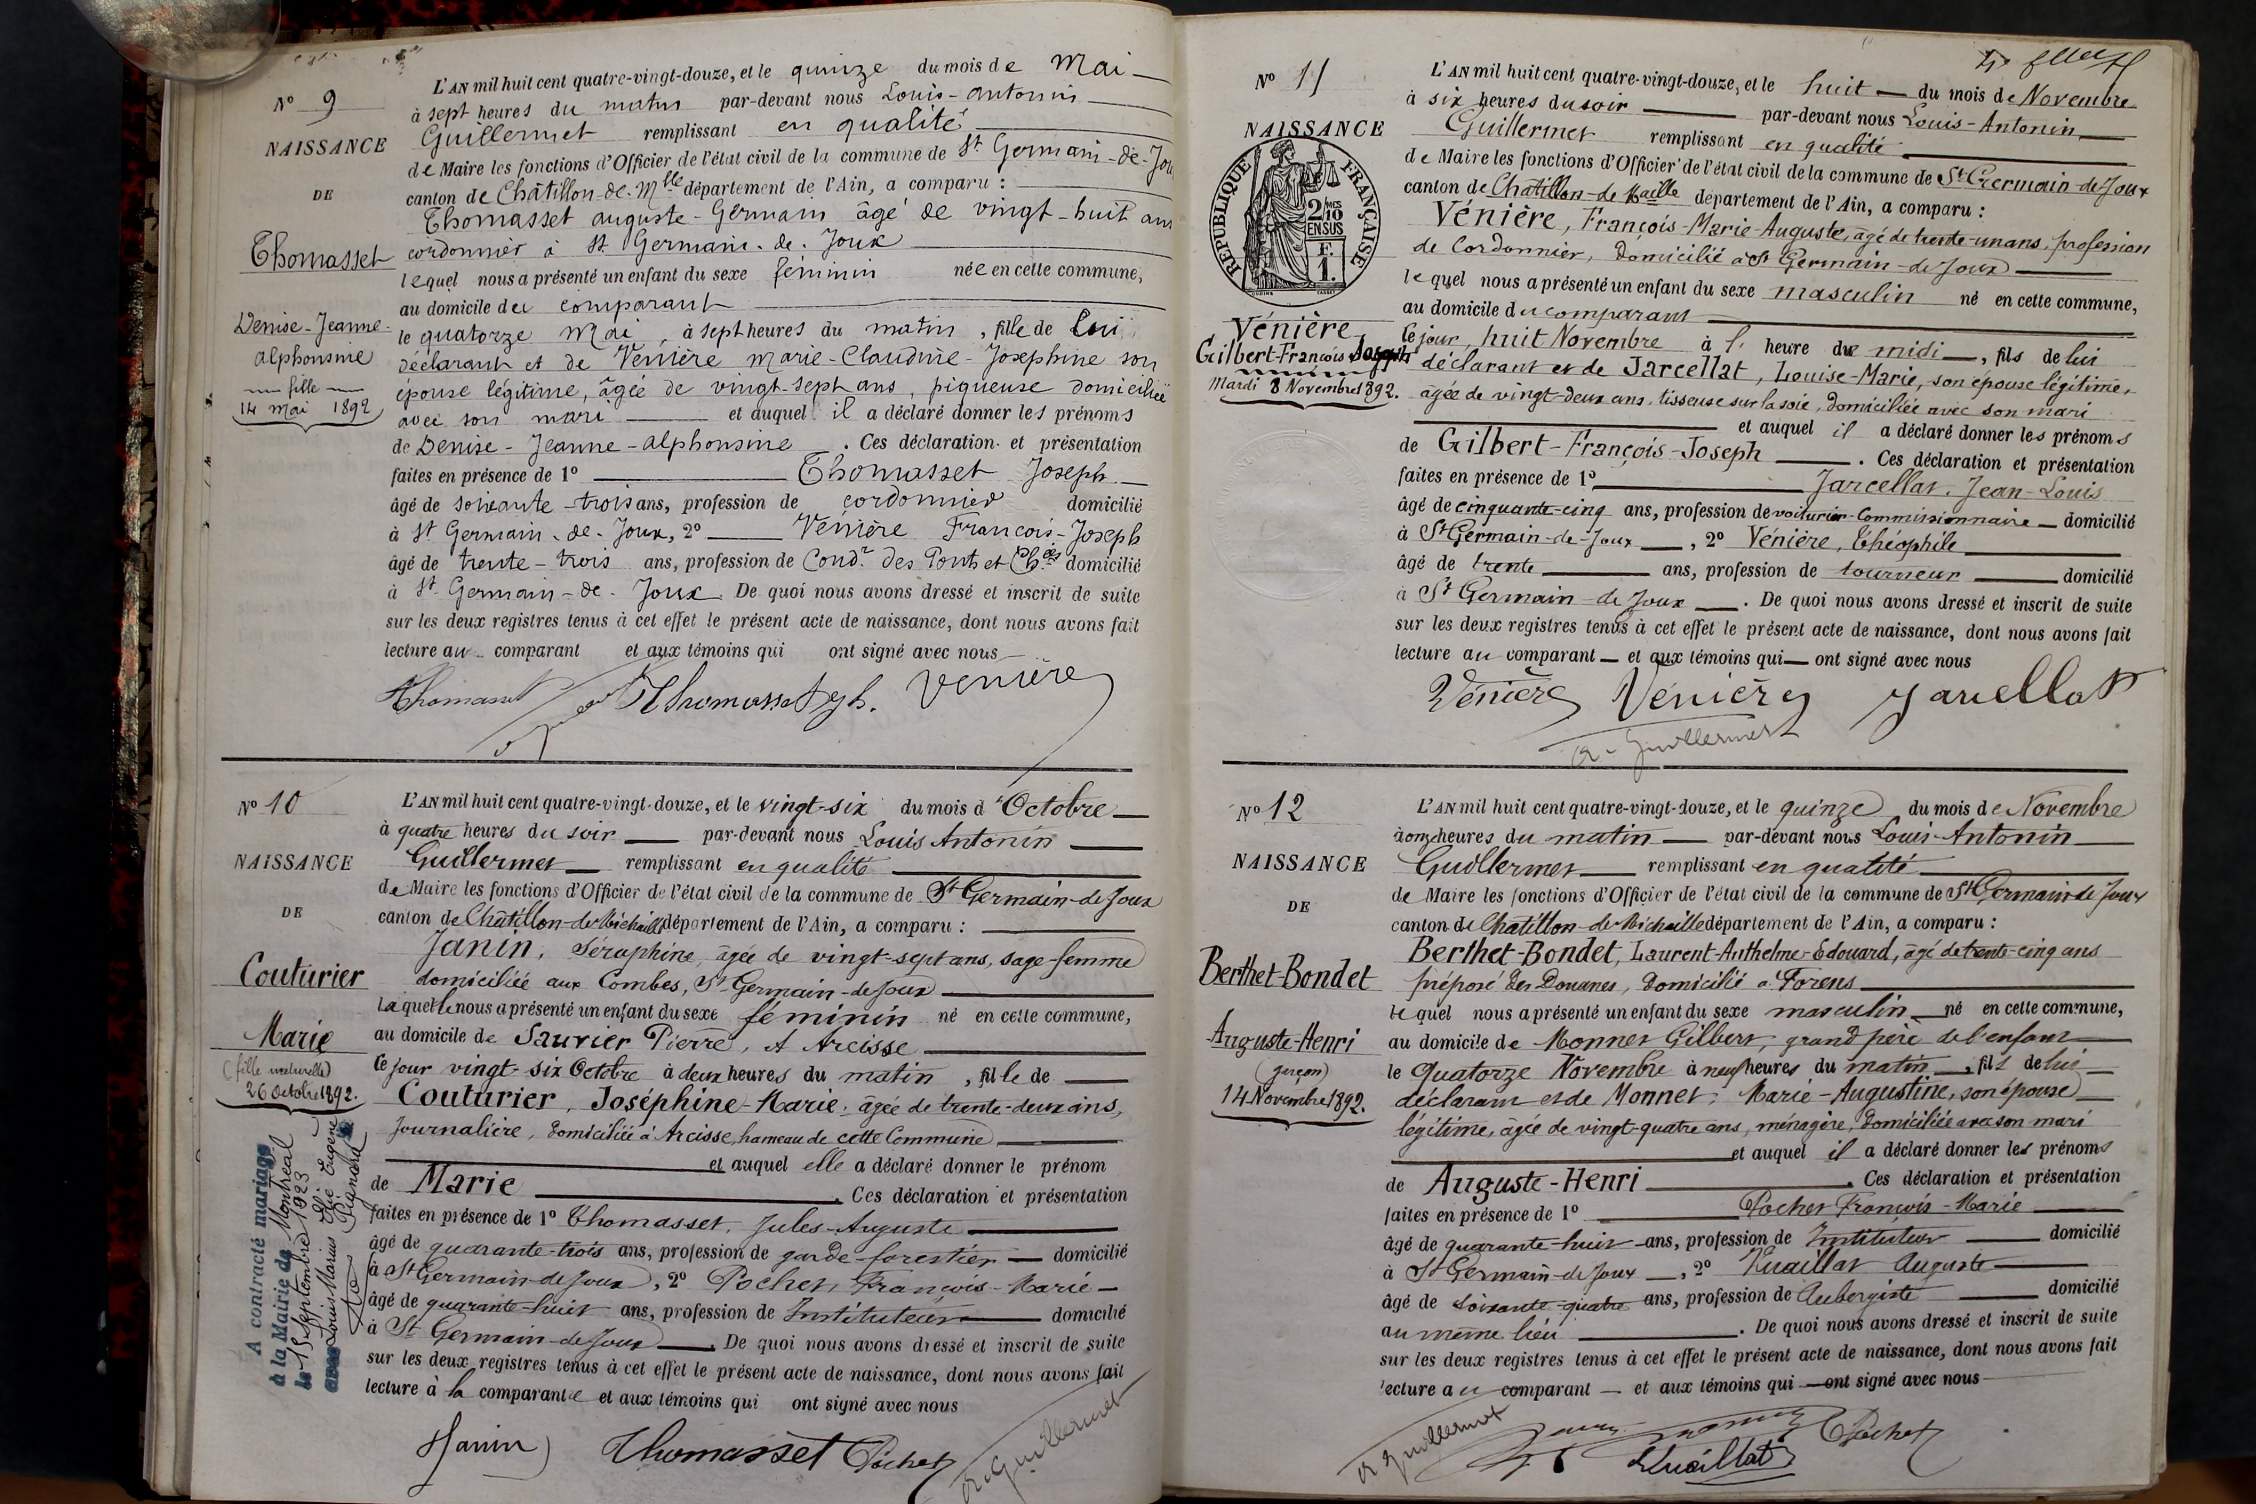 N° 9
NAISSANCE
DE
Thomasset
Denise-Jeanne-
alphonsine
fille
14 mai 1892
L'AN mil huit cent quatre-vingt-douze, et le quinze du mois de Mai
à sept heures du matin par-devant nous Louis-antonin
Guillermet remplissant en qualité
de Maire les fonctions d'Officier de l'état civil de la commune de St Germain-de-Joux
canton de Châtillon-de-Mlle département de l'Ain, a comparu :
Thomasset auguste-Germain âgé de vingt-huit ans
cordonnier à St Germain-de-Joux
lequel nous a présenté un enfant du sexe féminin née en cette commune,
au domicile du comparant
le quatorze Mai, à sept heures du matin, fille de lui
déclarant et de Venière Marie-Claudine-Josephine son
épouse légitime, âgée de vingt-sept ans, piqueuse domiciliée
avec son mari et auquel il a déclaré donner les prénoms
de Denise-Jeanne-alphonsine. Ces déclaration et présentation
faites en présence de 1° Thomasset Joseph
âgé de soixante-trois ans, profession de cordonnier domicilié
à St Germain-de-Joux, 2° Vénière Francois-Joseph
âgé de trente-trois ans, profession de Condr des Ponts et Ch.ées domicilié
à St Germain-de-Joux. De quoi nous avons dressé et inscrit de suite
sur les deux registres tenus à cet effet le présent acte de naissance, dont nous avons fait
lecture au comparant et aux témoins qui ont signé avec nous
Thomasset Thomasset Jph. Venière
N° 10
NAISSANCE
DE
Couturier
Marie
(fille naturelle)
26 Octobre 1892.
A contracté mariage
à la Mairie de Montréal
le 15 Septembre 1923
avec Louis Marius Elie Eugène
Pignard
L'AN mil huit cent quatre-vingt-douze, et le vingt-six du mois d'Octobre
à quatre heures du soir par-devant nous Louis Antonin
Guillermet remplissant en qualité
de Maire les fonctions d'Officier de l'état civil de la commune de St Germain-de-Joux
canton de Châtillon-de-Michaille département de l'Ain, a comparu :
Janin, Séraphine, âgée de vingt-sept ans, sage-femme
domiciliée aux Combes, St Germain-de-Joux
Laquelle nous a présenté un enfant du sexe féminin né en cette commune,
au domicile de Sauvier Pierre, à Arcisse
Ce jour vingt-six Octobre à deux heures du matin, fille de
Couturier, Joséphine-Marie, âgée de trente-deux ans,
Journalière, domiciliée à Arcisse, hameau de cette Commune
et auquel elle a déclaré donner le prénom
de Marie. Ces déclaration et présentation
faites en présence de 1° Thomasset, Jules-Auguste
âgé de quarante-trois ans, profession de garde-forestier domicilié
à St Germain-de-Joux, 2° Pochet, François-Marie
âgé de quarante-huit ans, profession de Instituteur domicilié
à St Germain-de-Joux. De quoi nous avons dressé et inscrit de suite
sur les deux registres tenus à cet effet le présent acte de naissance, dont nous avons fait
lecture à la comparante et aux témoins qui ont signé avec nous
Janin Thomasset Pochet A Guillermet
N° 11
NAISSANCE
RÉPUBLIQUE FRANÇAISE
2/10 MES
EN SUS
F.
1.
Vénière
Gilbert-François Joseph
Mardi 8 Novembre 1892.
L'AN mil huit cent quatre-vingt-douze, et le huit du mois de Novembre
à six heures du soir par-devant nous Louis-Antonin
Guillermet remplissant en qualité
de Maire les fonctions d'Officier de l'état civil de la commune de St Germain-de-Joux
canton de Châtillon-de-Maille département de l'Ain, a comparu :
Vénière, François-Marie-Auguste, âgé de trente-un ans, profession
de Cordonnier, domicilié à St Germain-de-Joux
lequel nous a présenté un enfant du sexe masculin né en cette commune,
au domicile du comparant
Ce jour, huit Novembre à l' heure de midi, fils de lui
déclarant et de Jarcellat, Louise-Marie, son épouse légitime,
âgée de vingt-deux ans, tisseuse sur la soie, domiciliée avec son mari
et auquel il a déclaré donner les prénoms
de Gilbert-François-Joseph. Ces déclaration et présentation
faites en présence de 1° Jarcellat, Jean-Louis
âgé de cinquante-cinq ans, profession de voiturier-Commissionnaire domicilié
à St Germain-de-Joux, 2° Vénière, Théophile
âgé de trente ans, profession de tourneur domicilié
à St Germain-de-Joux. De quoi nous avons dressé et inscrit de suite
sur les deux registres tenus à cet effet le présent acte de naissance, dont nous avons fait
lecture au comparant et aux témoins qui ont signé avec nous
Vénière Vénière Jarcellat
A. Guillermet
N° 12
NAISSANCE
DE
Berthet-Bondet
Auguste-Henri
(garçon)
14 Novembre 1892.
L'AN mil huit cent quatre-vingt-douze, et le quinze du mois de Novembre
à onze heures du matin par-devant nous Louis-Antonin
Guillermet remplissant en qualité
de Maire les fonctions d'Officier de l'état civil de la commune de St Germain-de-Joux
canton de Châtillon-de-Michaille département de l'Ain, a comparu :
Berthet-Bondet, Laurent-Anthelme-Edouard, âgé de trente-cinq ans
préposé des Douanes, domicilié à Forens
lequel nous a présenté un enfant du sexe masculin né en cette commune,
au domicile de Monnet Gilbert, grand père de l'enfant
le Quatorze Novembre à neuf heures du matin, fils de lui
déclarant et de Monnet, Marie-Augustine, son épouse
légitime, âgée de vingt-quatre ans, ménagère, domiciliée avec son mari
et auquel il a déclaré donner les prénoms
de Auguste-Henri. Ces déclaration et présentation
faites en présence de 1° Pochet François-Marie
âgé de quarante-huit ans, profession de Instituteur domicilié
à St Germain-de-Joux, 2° Vuaillat Auguste
âgé de soixante-quatre ans, profession de Aubergiste domicilié
au même lieu. De quoi nous avons dressé et inscrit de suite
sur les deux registres tenus à cet effet le présent acte de naissance, dont nous avons fait
lecture au comparant et aux témoins qui ont signé avec nous
A Guillermet Vuaillat Pochet